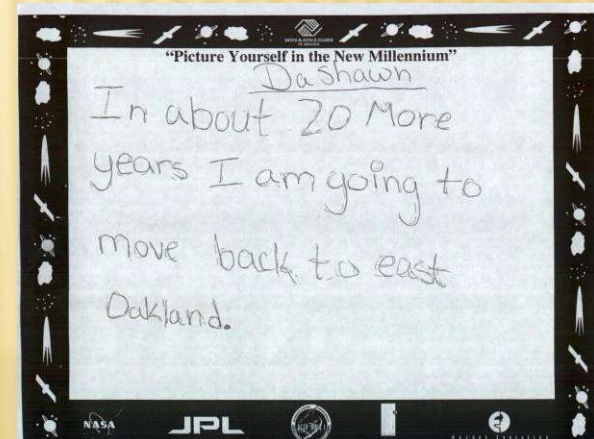 BOYS & GIRLS CLUBS
OF AMERICA
"Picture Yourself in the New Millennium"
Dashawn
In about 20 More
years I am going to
move back to east
Oakland.
NASA JPL